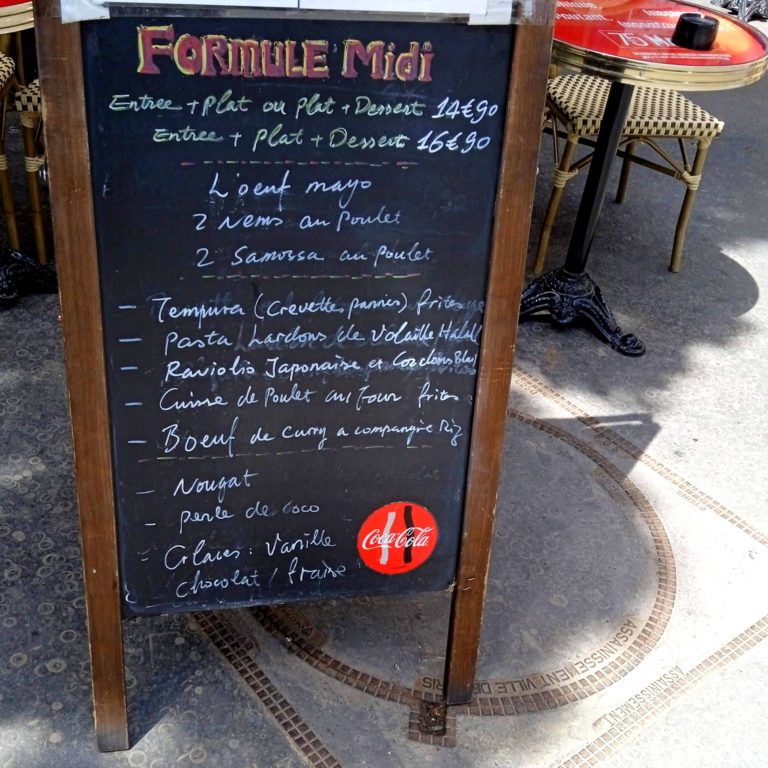 FORMULE Midi
Entree + Plat ou Plat + Dessert 14€90
Entree + Plat + Dessert 16€90
L'oeuf mayo
2 Nems au Poulet
2 Samossa au Poulet
- Tempura (Crevettes pannées) frites
- Pasta Lardons de Volaille Halall
- Raviolis Japonaise et Cordons Bleu
- Cuisse de Poulet au Four frites
- Boeuf de Curry acompangié Riz
- Nougat
- Perle de coco
- Glaces: Vanille
Chocolat / fraise
Coca-Cola
75
ASSAINISSEMENT VILLE DE PARIS
ASSAINISSEMENT